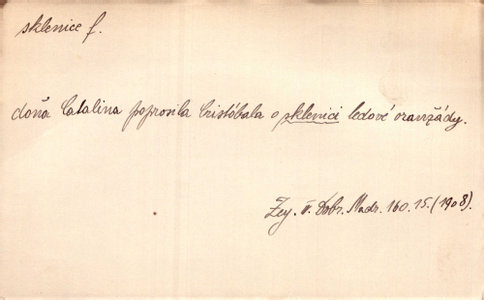 sklenice f.
doña Catalina poprosila Cristóbala o sklenici ledové oranžády.
Zey. V. Dobr. Madr. 160. 15. (1908).